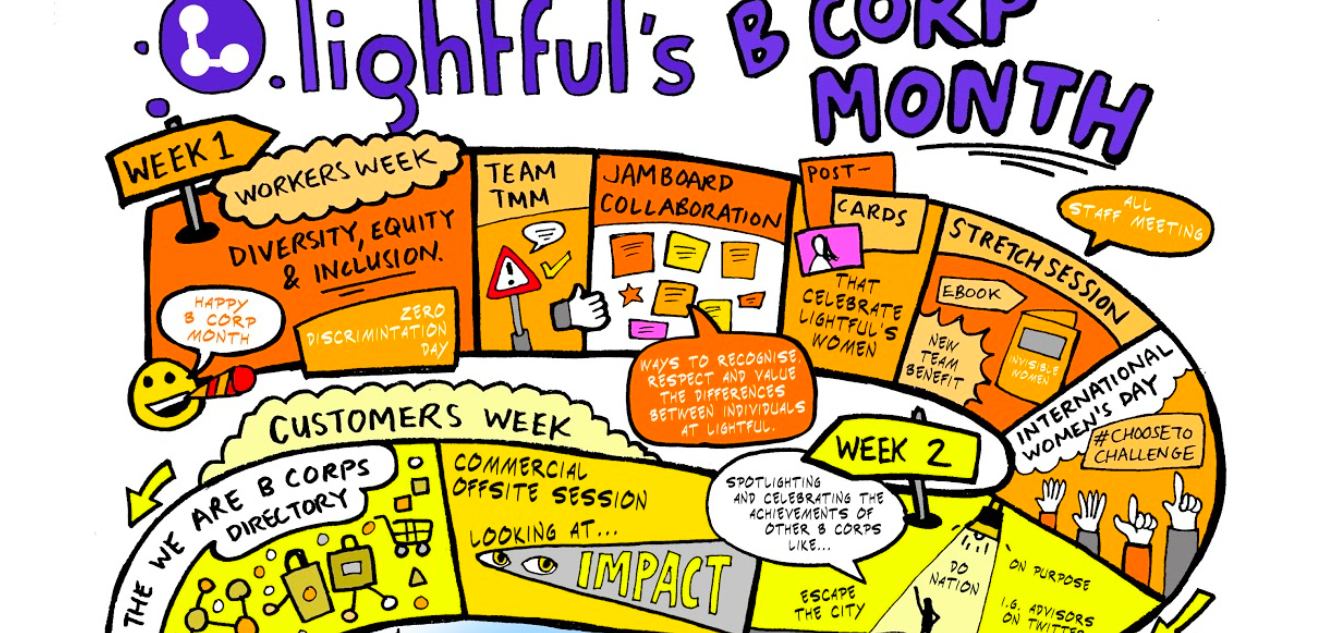 lightful's B CORP
MONTH
WEEK 1
WORKERS WEEK
DIVERSITY, EQUITY
& INCLUSION.
HAPPY
B CORP
MONTH
ZERO
DISCRIMINTATION
DAY
TEAM
TMM
JAMBOARD
COLLABORATION
WAYS TO RECOGNISE,
RESPECT AND VALUE
THE DIFFERENCES
BETWEEN INDIVIDUALS
AT LIGHTFUL.
POST-
CARDS
THAT
CELEBRATE
LIGHTFUL'S
WOMEN
STRETCH SESSION
EBOOK
NEW
TEAM
BENEFIT
INVISIBLE
WOMEN
ALL
STAFF MEETING
INTERNATIONAL
WOMEN'S DAY
#CHOOSETO
CHALLENGE
WEEK 2
CUSTOMERS WEEK
SPOTLIGHTING
AND CELEBRATING THE
ACHIEVEMENTS OF
OTHER B CORPS
LIKE...
ON PURPOSE
I.G. ADVISORS
ON TWITTER
DO
NATION
ESCAPE
THE CITY
COMMERCIAL
OFFSITE SESSION
LOOKING AT...
IMPACT
THE WE ARE B CORPS
DIRECTORY